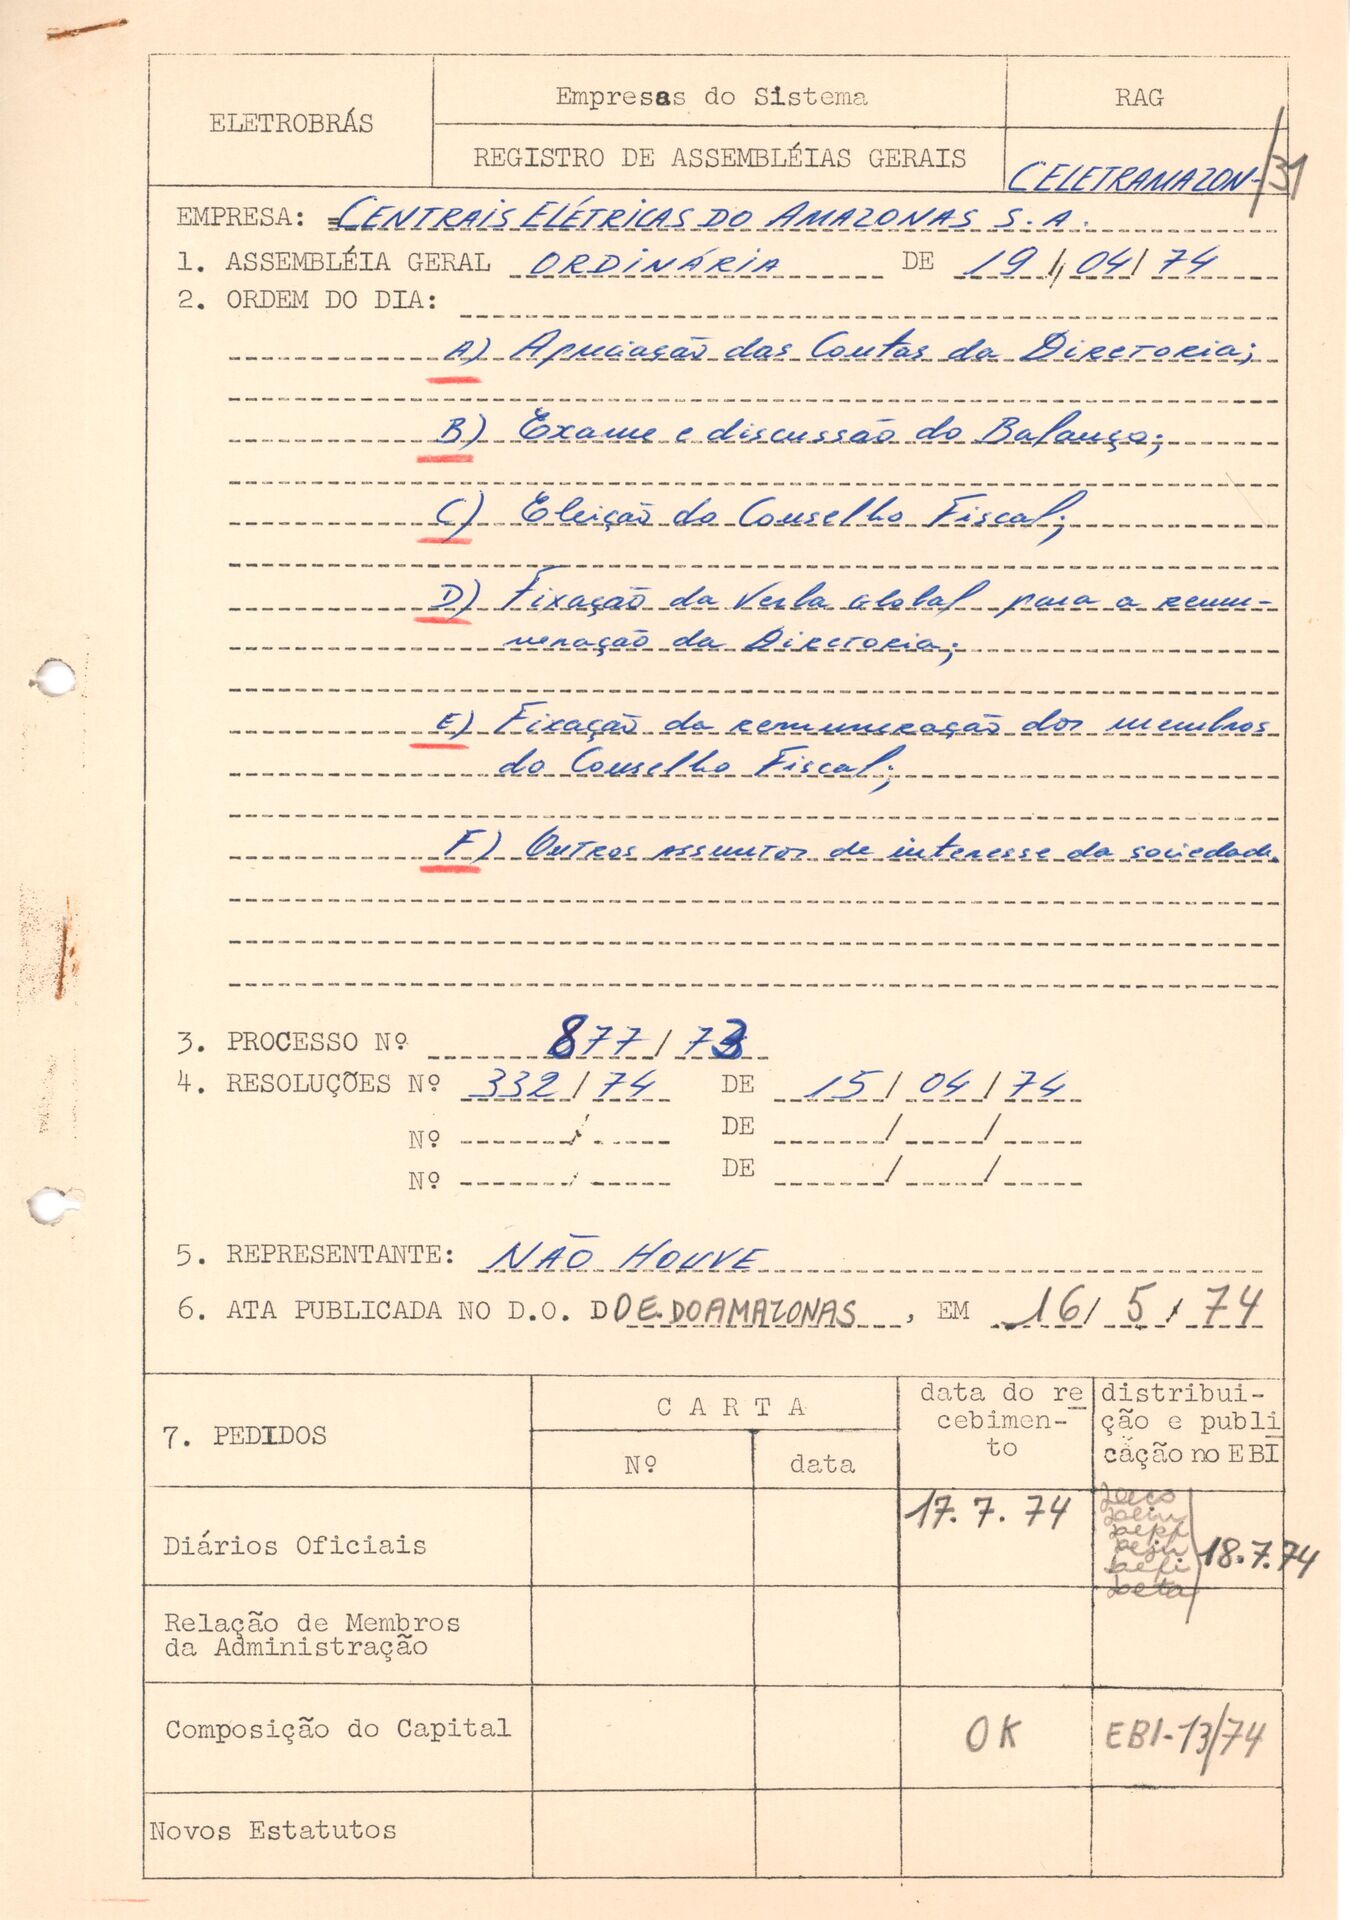 ELETROBRÁS
Empresas do Sistema
REGISTRO DE ASSEMBLÉIAS GERAIS
RAG
CELETRAMAZON-/31
EMPRESA: CENTRAIS ELÉTRICAS DO AMAZONAS S.A.
1. ASSEMBLÉIA GERAL ORDINÁRIA DE 19/04/74
2. ORDEM DO DIA:
A) Apreciação das Contas da Diretoria;
B) Exame e discussão do Balanço;
C) Eleição do Conselho Fiscal;
D) Fixação da Verba Global para a remu-
neração da Diretoria;
E) Fixação da remuneração dos membros
do Conselho Fiscal;
F) Outros assuntos de interesse da sociedade.
3. PROCESSO Nº 877/73
4. RESOLUÇÕES Nº 332/74 DE 15/04/74
Nº / DE / /
Nº / DE / /
5. REPRESENTANTE: NÃO HOUVE
6. ATA PUBLICADA NO D.O. DO E. DO AMAZONAS, EM 16/5/74
7. PEDIDOS
CARTA
Nº
data
data do re
cebimen-
to
distribui-
ção e publi
cação no EBI
Diários Oficiais
17.7.74
18.7.74
Relação de Membros
da Administração
Composição do Capital
OK
EBI-13/74
Novos Estatutos